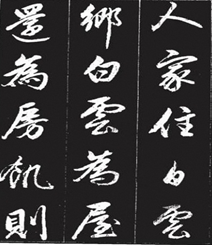 人家住白雲
鄉白雲為屋
還為房飢則